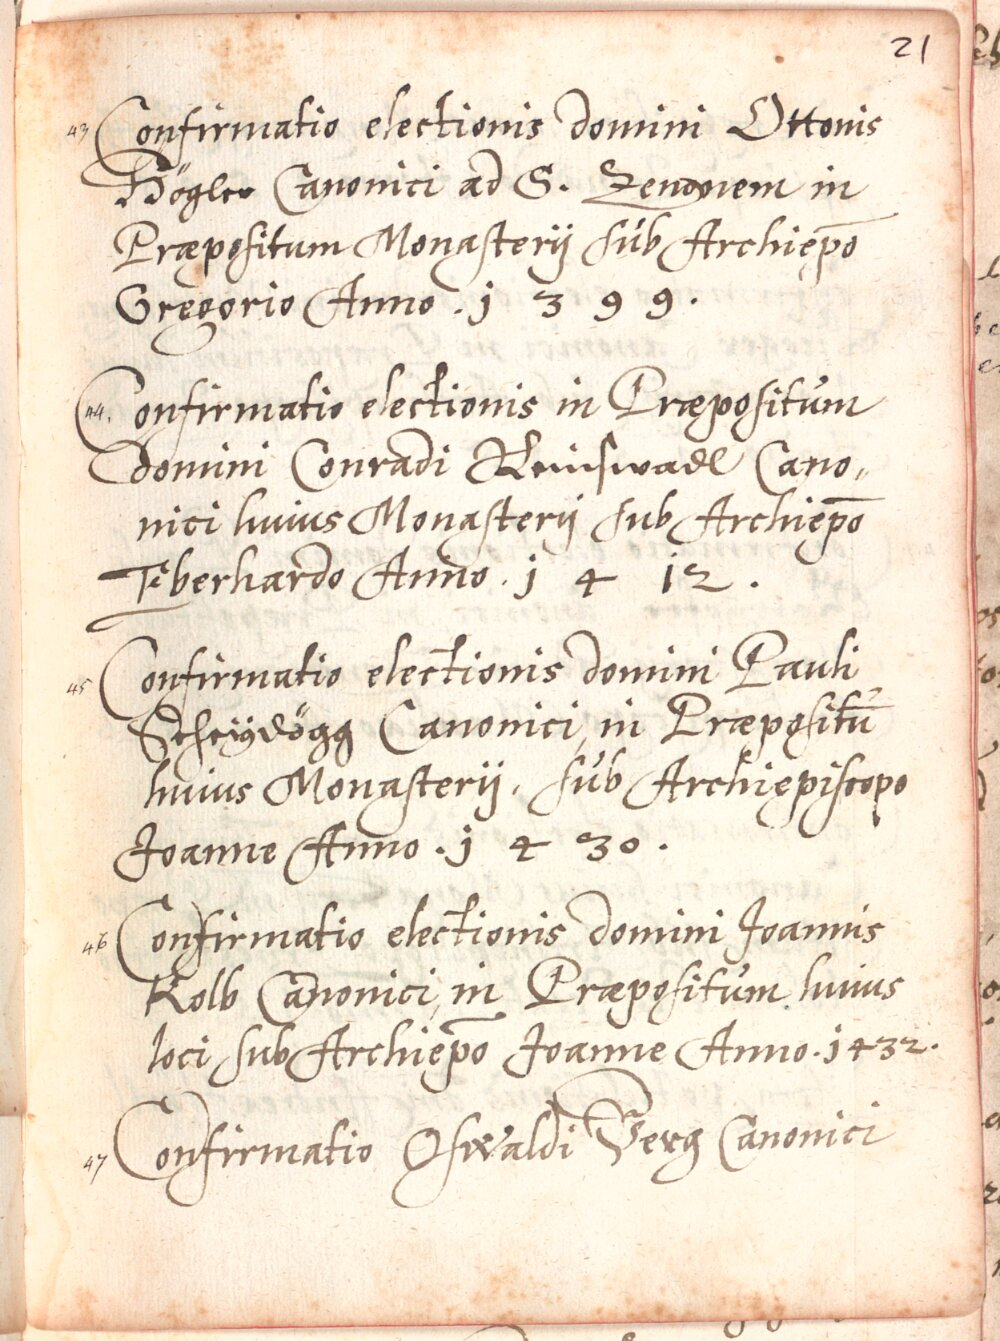 21
43 Confirmatio electionis domini Ottonis
Högler Canonici ad S. Zenonem in
Præpositum Monasterij sub Archiepō
Gregorio Anno . 1 3 9 9 .
44. Confirmatio electionis in Præpositum
domini Conradi Reinswadl Cano„
nici huius Monasterij sub Archiepō
Eberhardo Anno . 1 4 12 .
45 Confirmatio electionis domini Pauli
Canonici, in Præpositū
huius Monasterij, sub Archiepiscopo
Joanne Anno . 1 4 30 .
46 Confirmatio electionis domini Joannis
Kolb Canonici, in Præpositum huius
loci sub Archiepō Joanne Anno . 1432 .
47 Confirmatio Oswaldi Verg Canonici